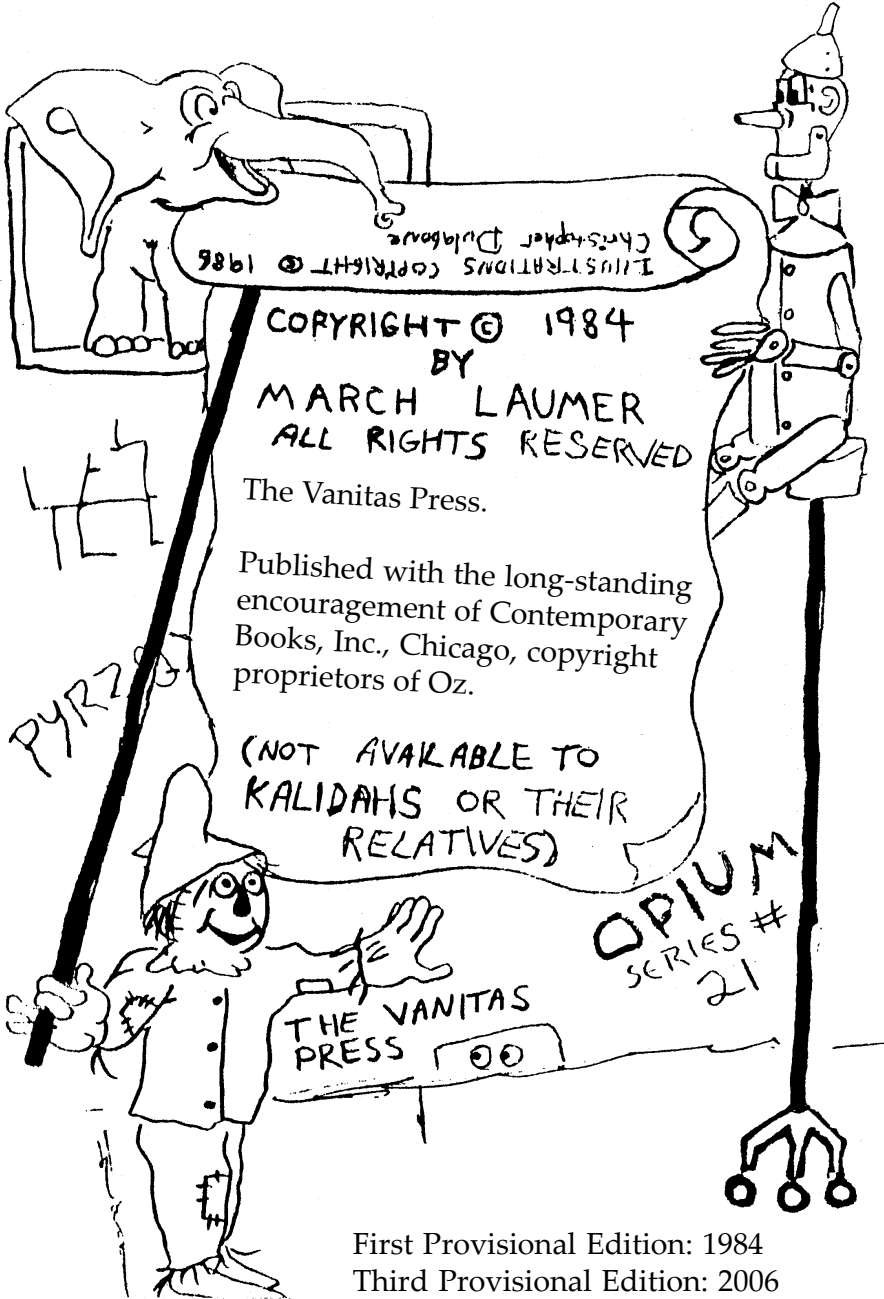 ILLUSTRATIONS COPYRIGHT © 1986
Christopher Dulabone
COPYRIGHT © 1984
BY
MARCH LAUMER
ALL RIGHTS RESERVED
The Vanitas Press.
Published with the long-standing
encouragement of Contemporary
Books, Inc., Chicago, copyright
proprietors of Oz.
(NOT AVAILABLE TO
KALIDAHS OR THEIR
RELATIVES)
OPIUM
SERIES #
21
THE VANITAS
PRESS
First Provisional Edition: 1984
Third Provisional Edition: 2006